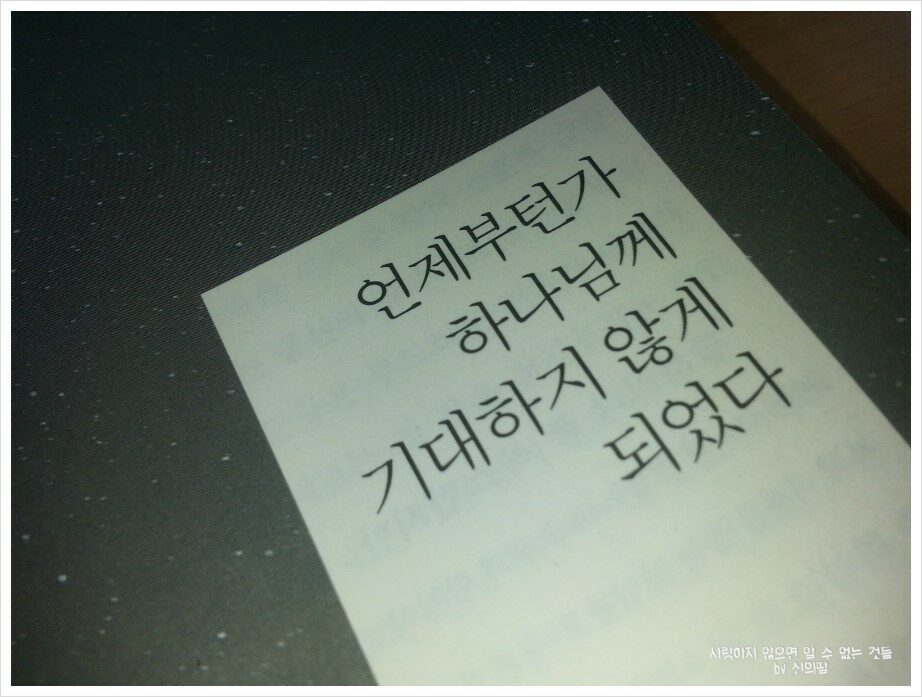 언제부턴가
하나님께
기대하지 않게
되었다
사랑하지 않으면 알 수 없는 것들
by 신의딸